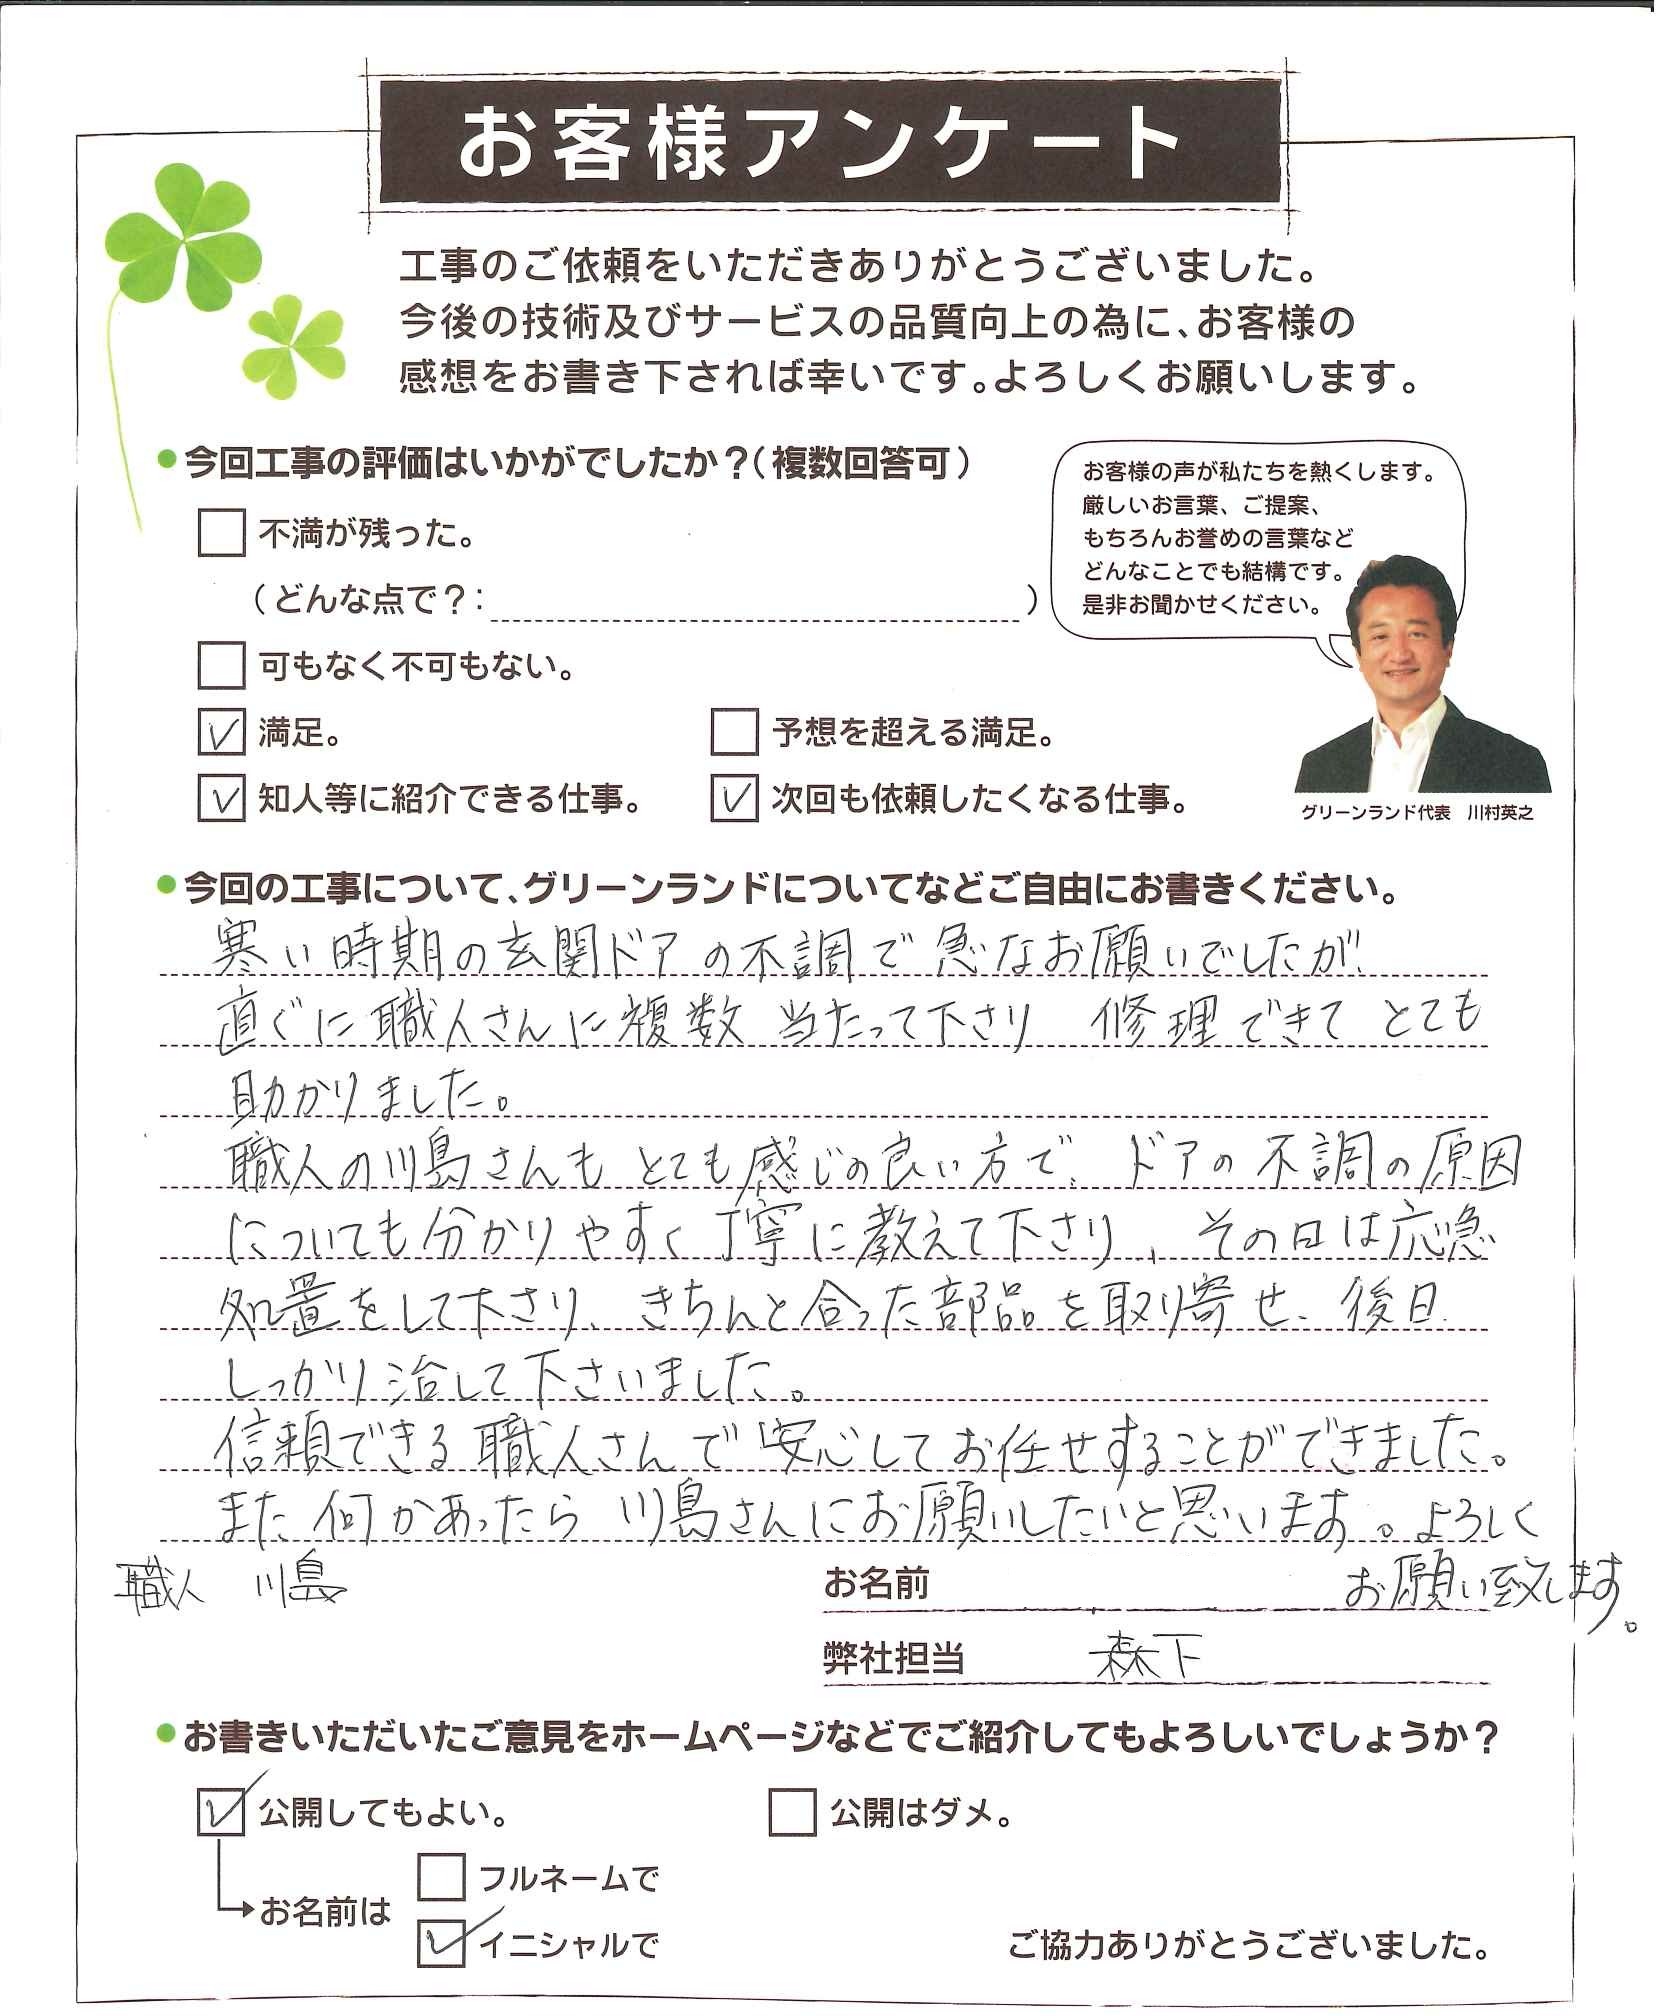 お客様アンケート
工事のご依頼をいただきありがとうございました。
今後の技術及びサービスの品質向上の為に、お客様の
感想をお書き下されば幸いです。よろしくお願いします。
●今回工事の評価はいかがでしたか？（複数回答可）
お客様の声が私たちを熱くします。
厳しいお言葉、ご提案、
もちろんお誉めの言葉など
どんなことでも結構です。
是非お聞かせください。
不満が残った。
（どんな点で？：　）
可もなく不可もない。
満足。　予想を超える満足。
知人等に紹介できる仕事。　次回も依頼したくなる仕事。
グリーンランド代表　川村英之
●今回の工事について、グリーンランドについてなどご自由にお書きください。
寒い時期の玄関ドアの不調で急なお願いでしたが、
直ぐに職人さんに複数当たって下さり　修理できてとても
助かりました。
職人の川島さんもとても感じの良い方で、ドアの不調の原因
についても分かりやすく丁寧に教えて下さり、その日は応急
処置をして下さり、きちんと合った部品を取り寄せ、後日
しっかり治して下さいました。
信頼できる職人さんで安心してお任せすることができました。
また何かあったら川島さんにお願いしたいと思います。よろしく
お願い致します。
職人　川島
お名前
弊社担当　森下
●お書きいただいたご意見をホームページなどでご紹介してもよろしいでしょうか？
公開してもよい。　公開はダメ。
お名前は
フルネームで
イニシャルで
ご協力ありがとうございました。